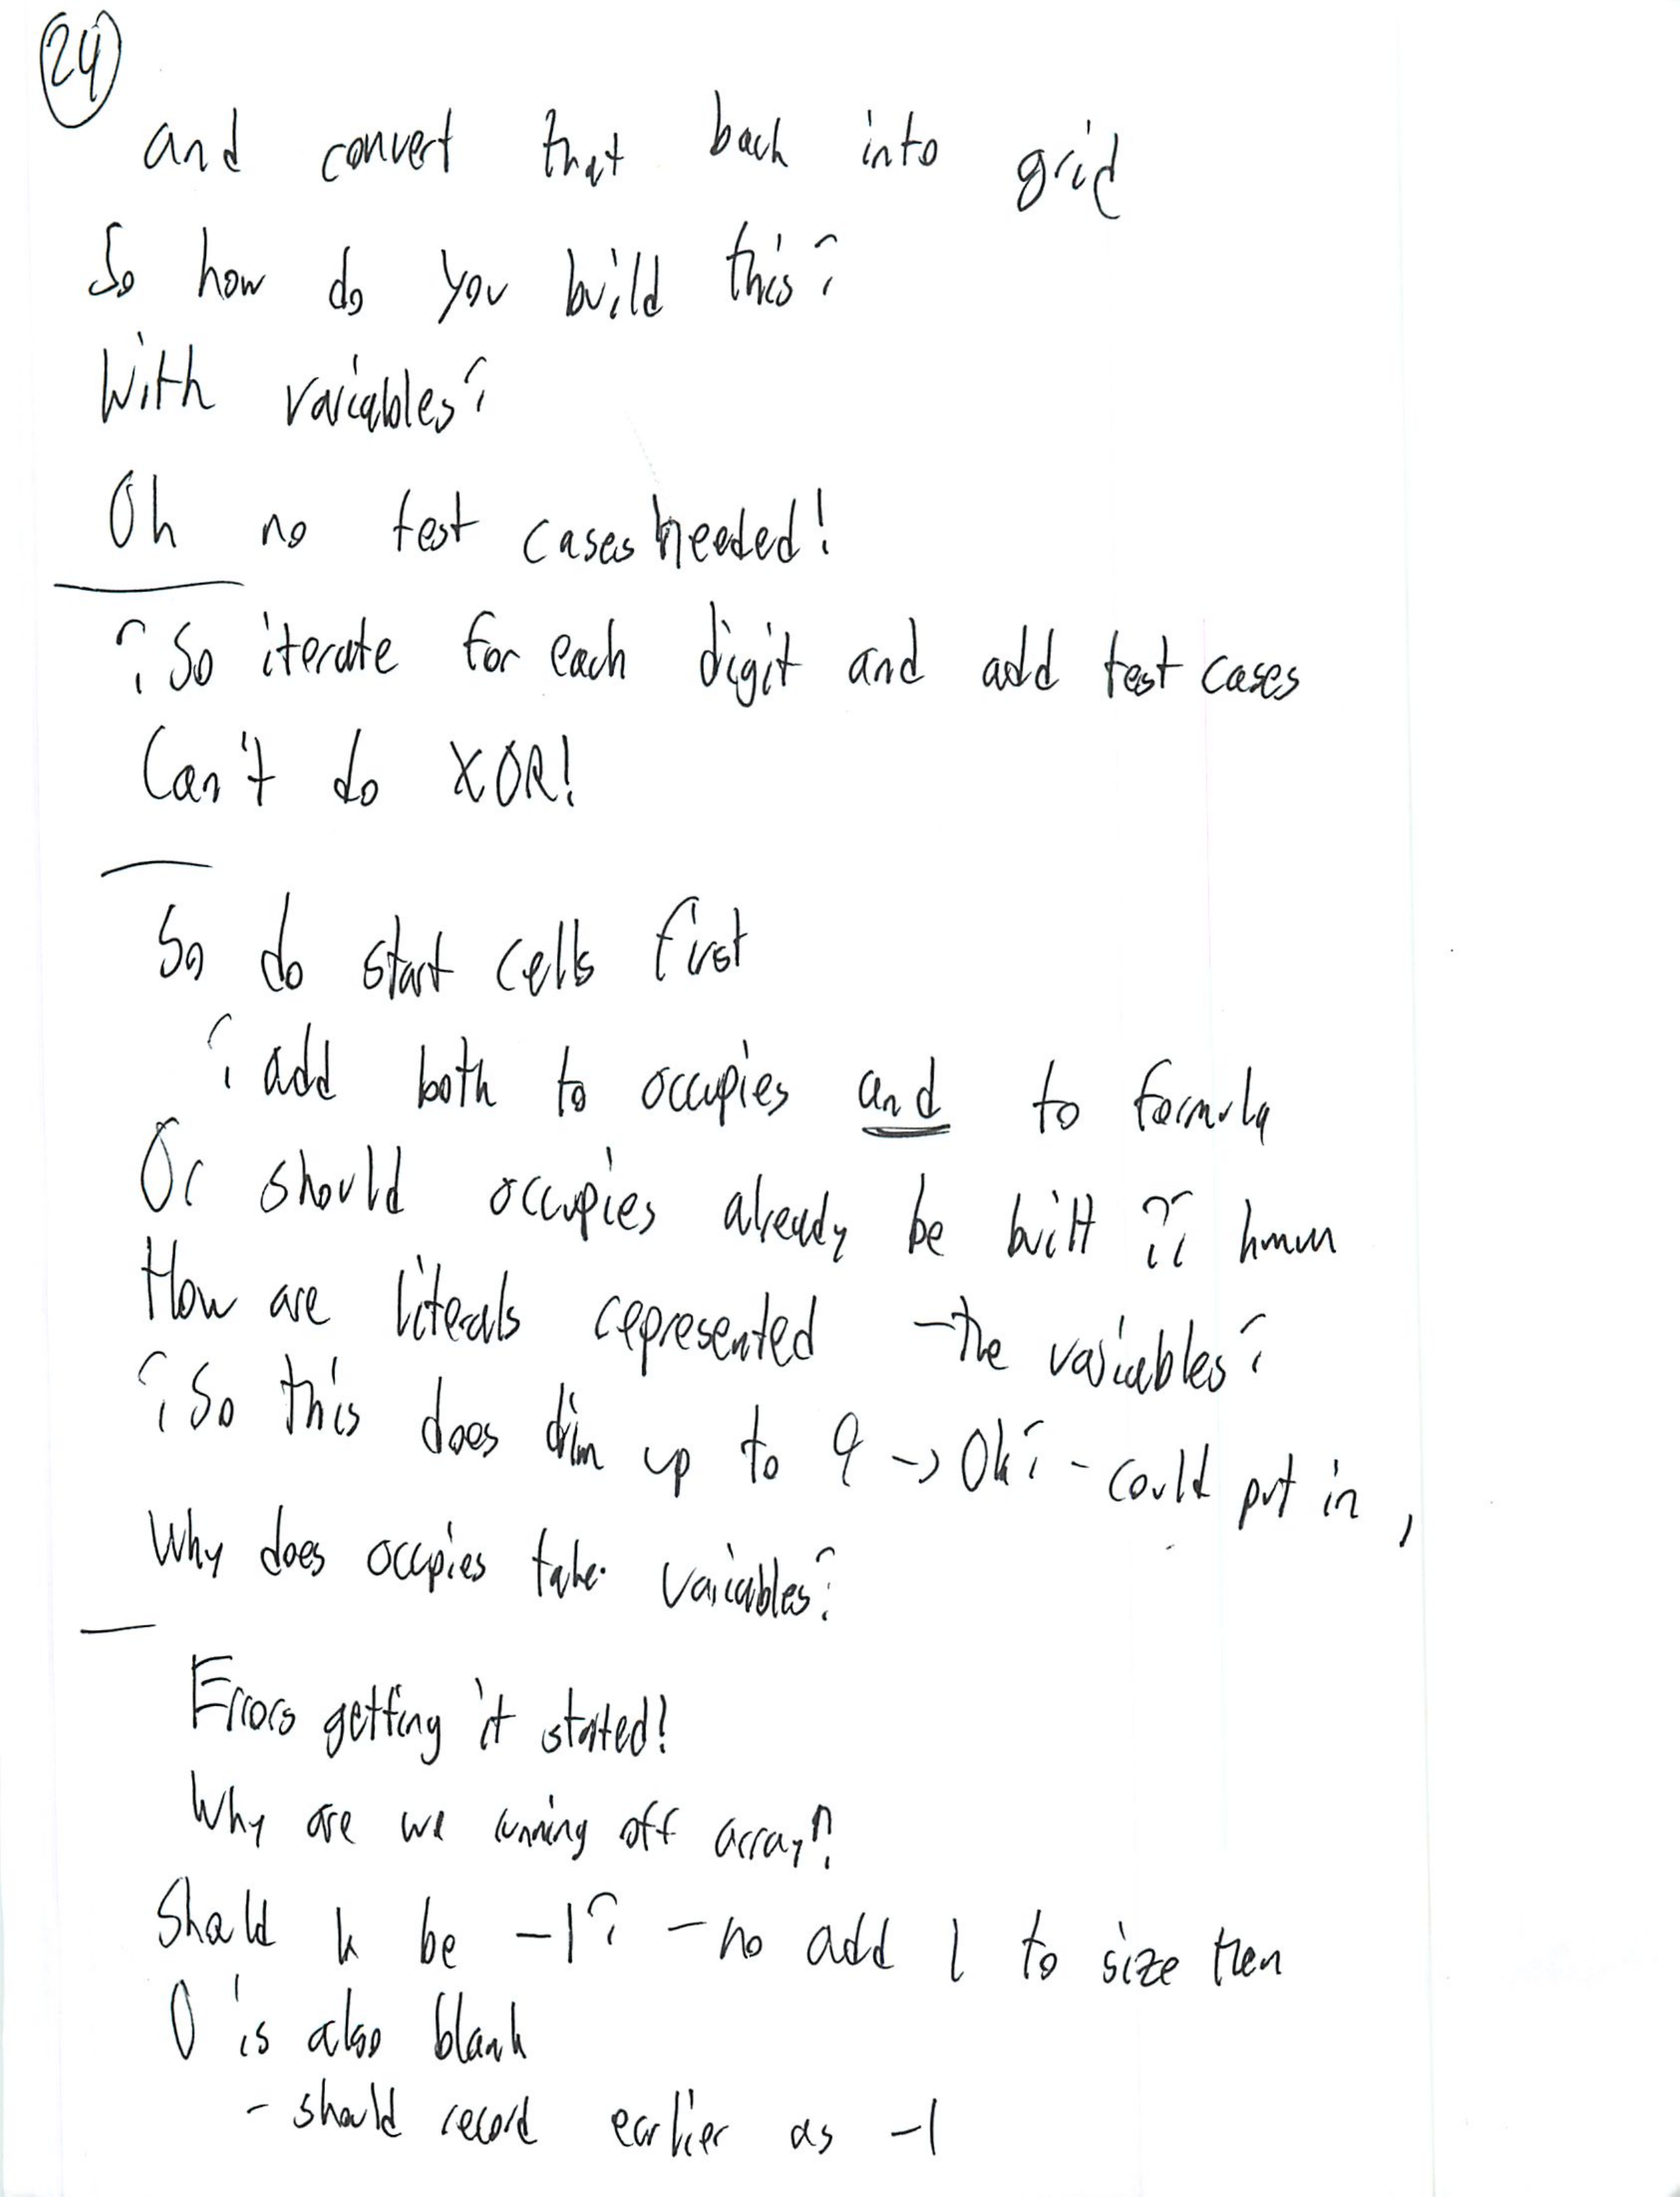 24
and convert that back into grid
So how do you build this?
With variables?
Oh no test cases needed!
? So iterate for each digit and add test cases
Can't do XOR!
So do start cells first
? add both to occupies and to formula
Or should occupies already be built ?? hmm
How are literals represented - the variables?
? So this does dim up to 9 -> Ok? - could put in ,
Why does occupies take variables?
Errors getting it started!
Why are we running off array?
Should k be -1? - no add 1 to size then
0 is also blank
- should record earlier as -1